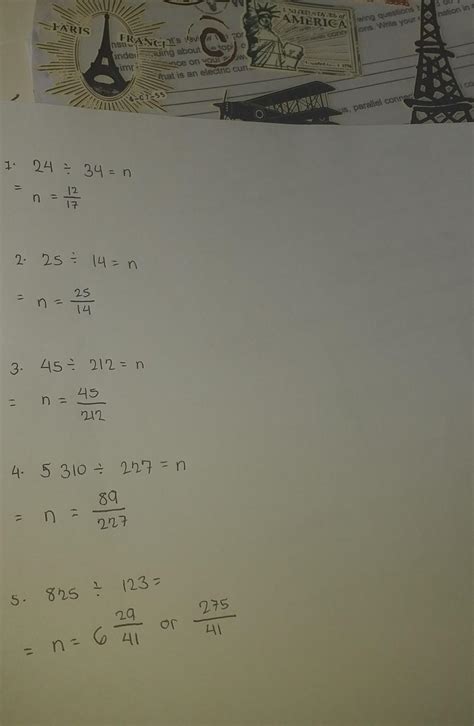 PARIS
FRANCE
UNITED STATES of
AMERICA
wing questions
ions. Write your
hat is an electric
parallel
1. 24 ÷ 34 = n
= n = 12/17
2. 25 ÷ 14 = n
= n = 25/14
3. 45 ÷ 212 = n
= n = 45/212
4. 5 310 ÷ 227 = n
= n = 89/227
5. 825 ÷ 123 =
= n = 6 29/41 or 275/41